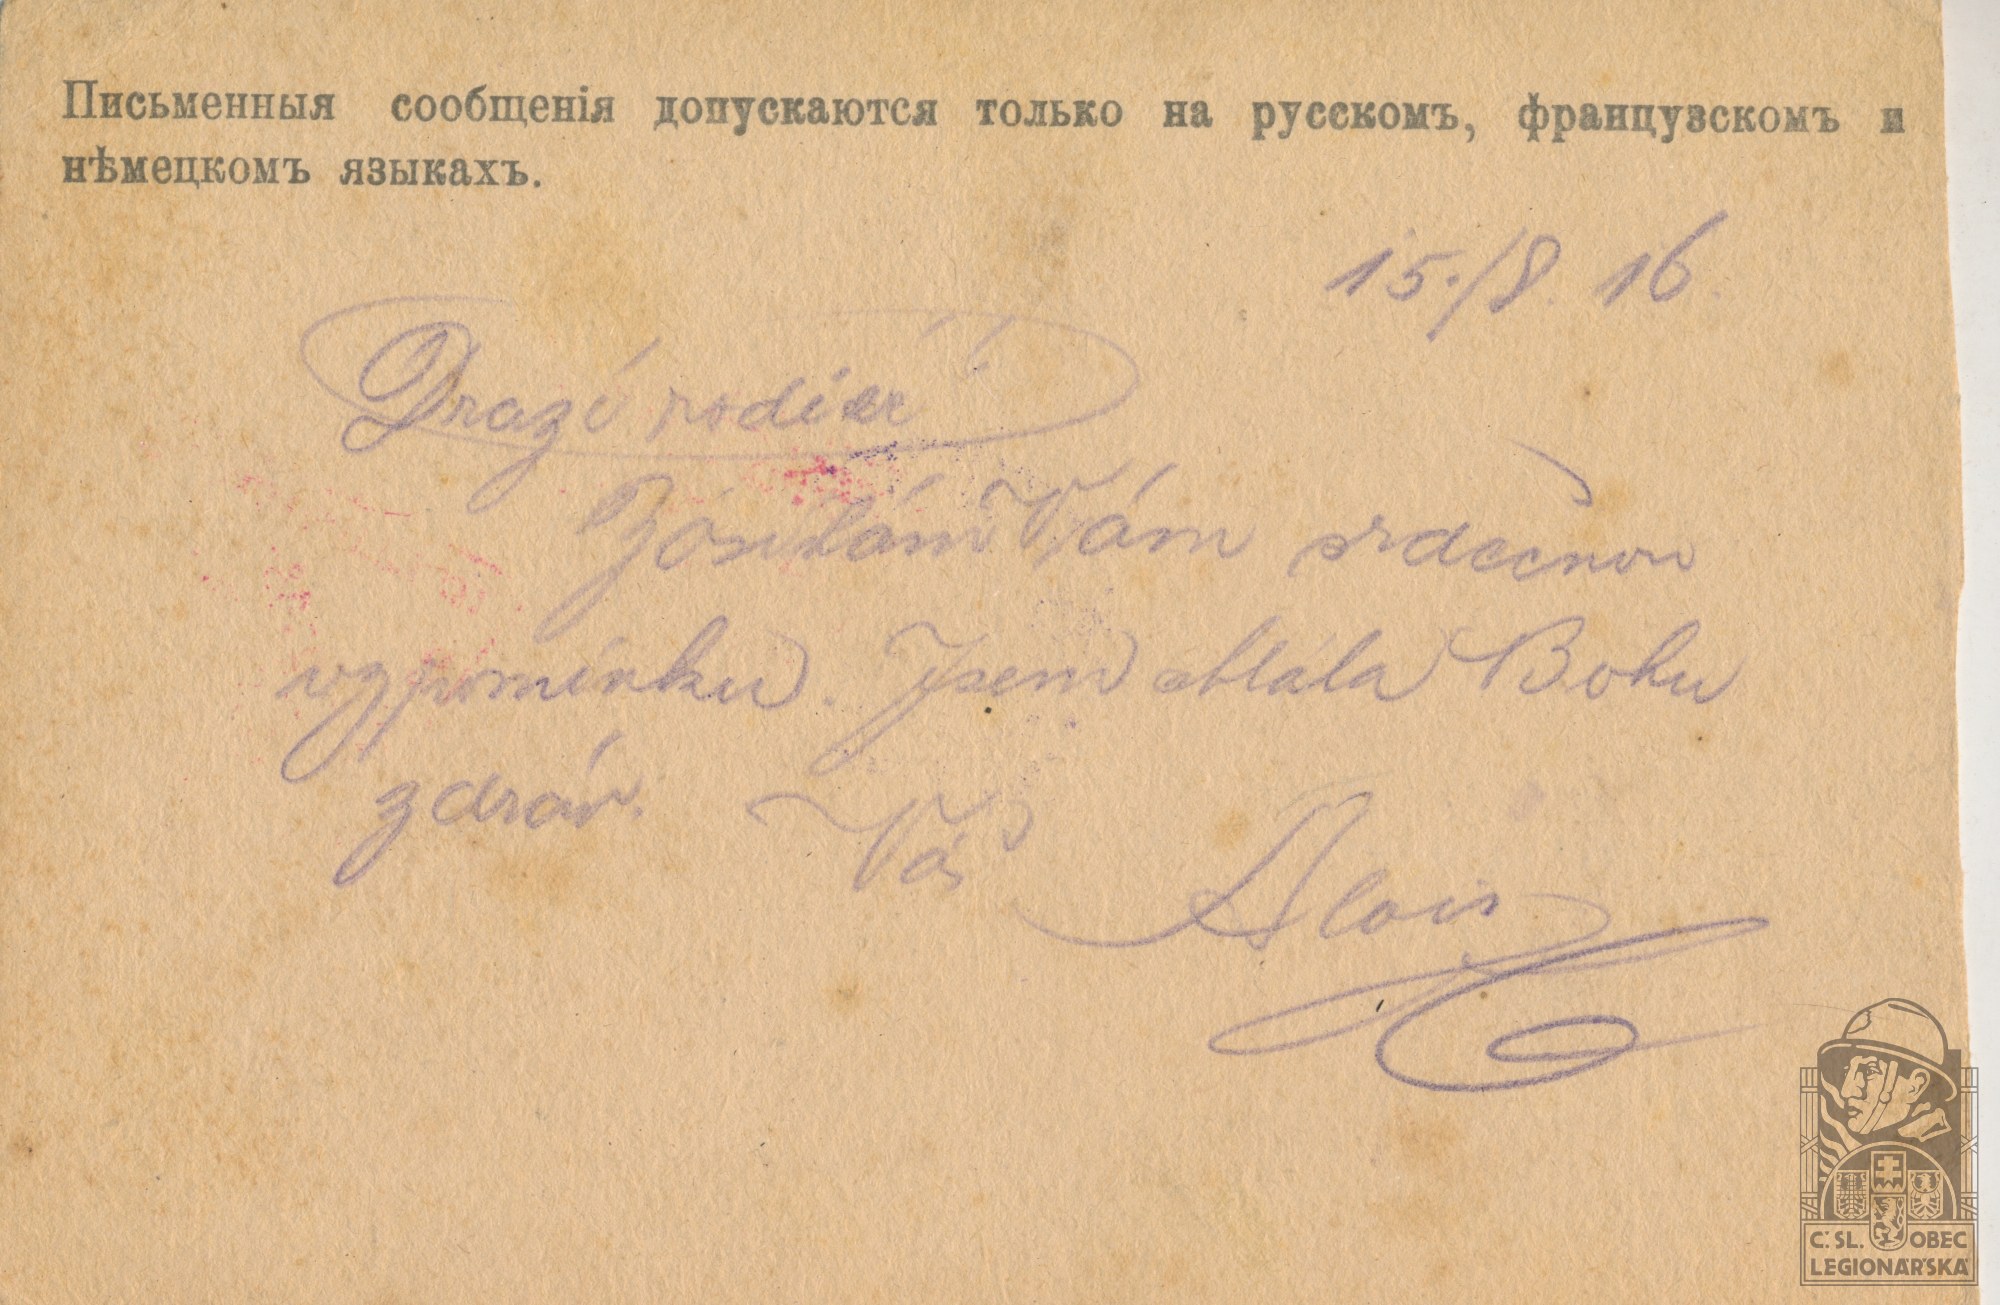 Письменныя сообщенія допускаются только на русскомъ, французскомъ и
нѣмецкомъ языкахъ.
15./8. 16.
Drazí rodiče!
Zasílám Vám srdečnou
vzpomínku. Jsem chvála Bohu
zdráv. Váš Alois
Č. SL. OBEC
LEGIONÁŘSKÁ